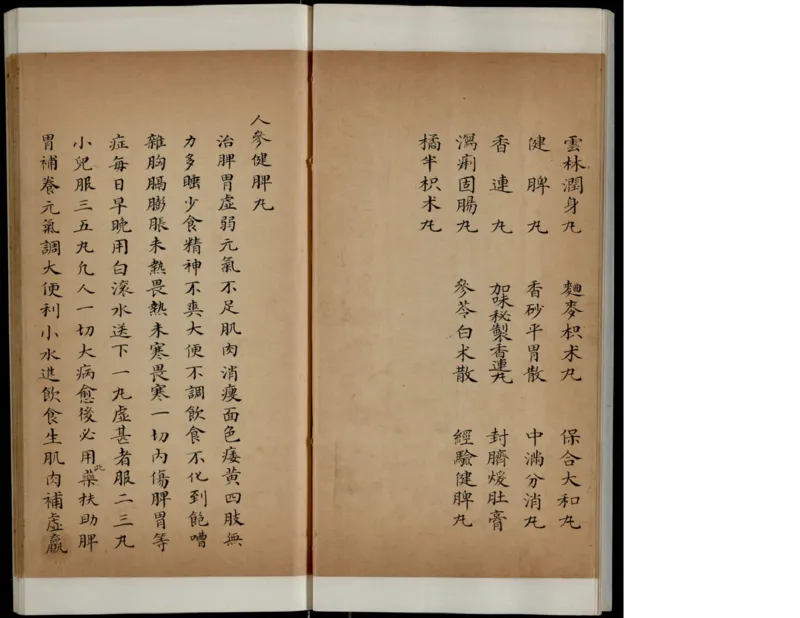 雲林潤身丸
麯麥枳术丸
保合大和丸
健脾丸
香砂平胃散
中滿分消丸
香連丸
加味秘製香連丸
封臍煖肚膏
瀉痢固腸丸
參苓白术散
經驗健脾丸
橘半枳术丸
人參健脾丸
治脾胃虛弱元氣不足肌肉消瘦面色痿黃四肢無
力多睡少食精神不爽大便不調飲食不化到飽嘈
雜胸膈膨脹未熱畏熱未寒畏寒一切內傷脾胃等
症每日早晚用白滾水送下一丸虛甚者服二三丸
小兒服三五丸凢人一切大病愈後必用此藥扶助脾
胃補養元氣調大便利小水進飲食生肌肉補虛羸